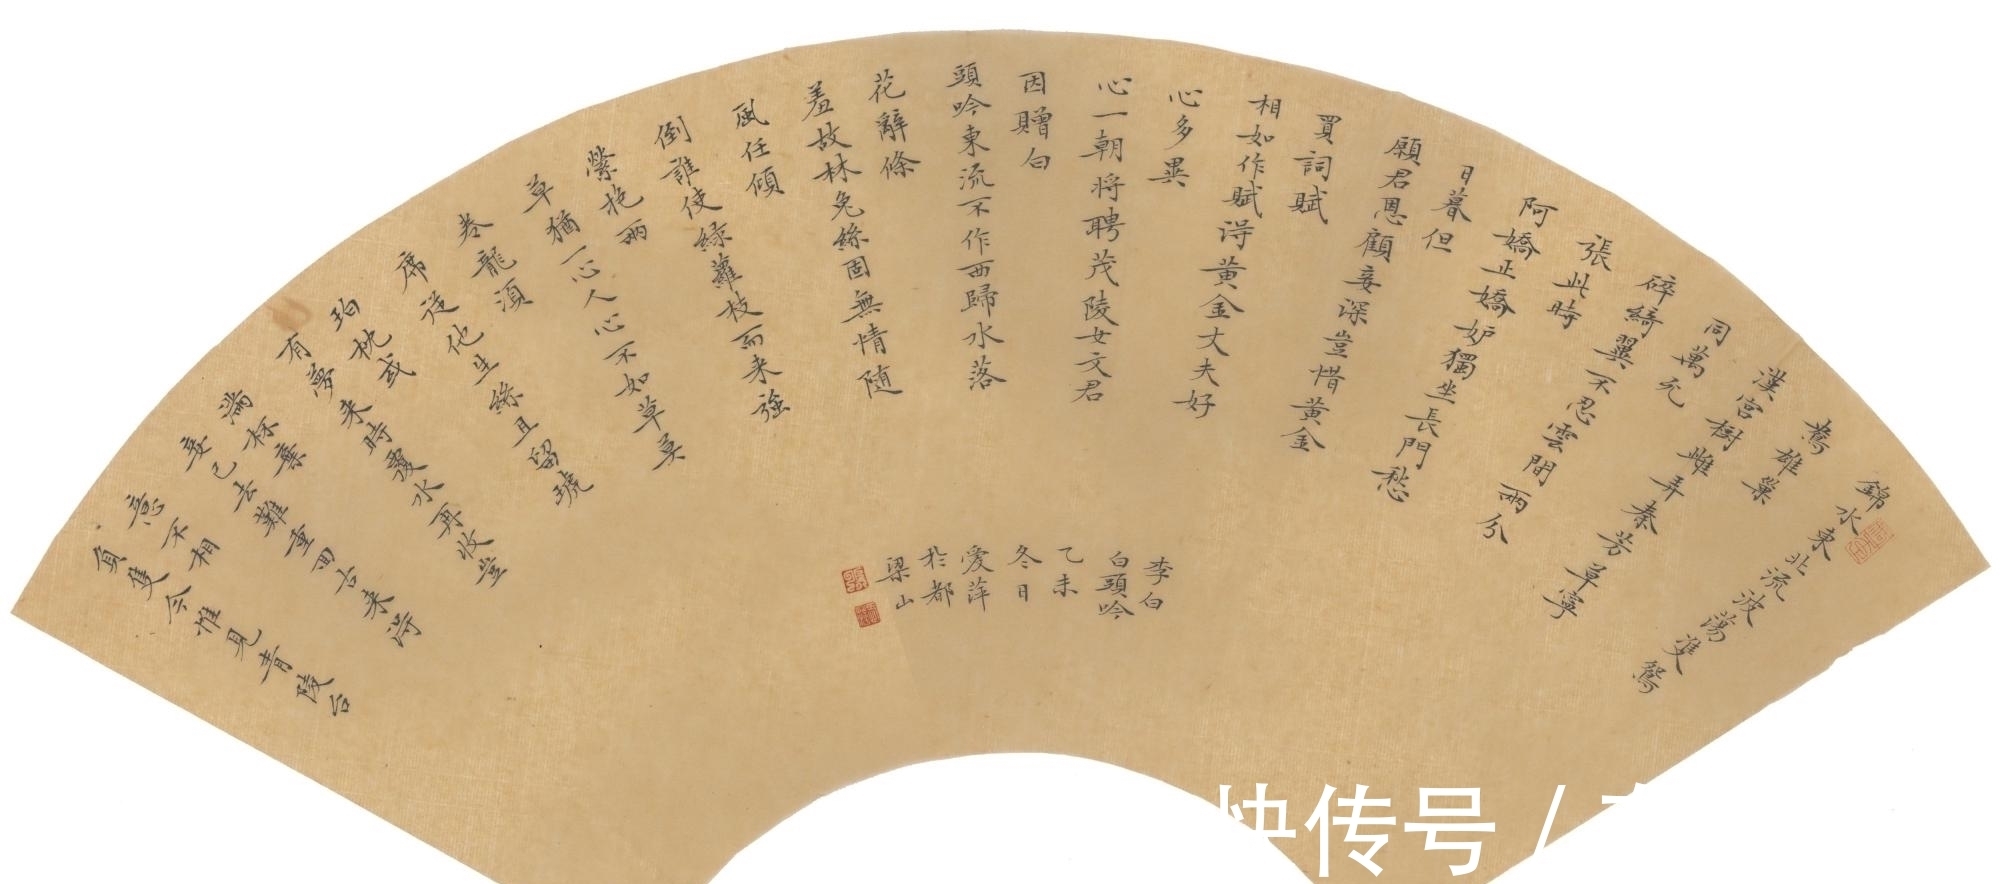 錦水東北流波蕩雙鴛
鴦雄巢
漢宮樹雌弄秦芳草寧
同萬死
碎綺翼不忍雲間兩分
張此時
阿嬌正嬌妒獨坐長門愁
日暮但
願君恩顧妾深豈惜黃金
買詞賦
相如作賦得黃金丈夫好
心多異
心一朝将聘茂陵女文君
因贈白
頭吟東流不作西歸水落
花辭條
羞故林兔絲固無情随
風任傾
倒誰使緑蘿枝而来強
縈抱兩
草猶一心人心不如草莫
卷龍須
席從他生絲且留琥
珀枕或
有夢来時覆水再收豈
滿杯棄
妾已去難重回古来得
意不相
負隻今惟見青陵台
李白
白頭吟
乙未
冬日
愛萍
於都
梁山
快传号 /